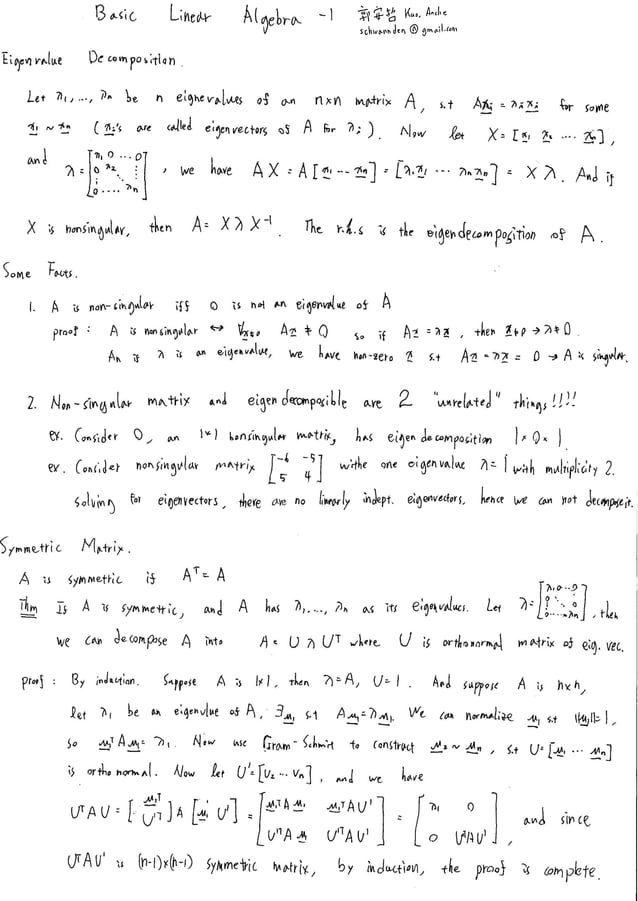 Basic Linear Algebra -1 郭安哲 Kuo, Anche
schwannden @ gmail.com
Eigenvalue Decomposition.
Let λ1, ..., λn be n eignevalues of an n×n matrix A, s.t Axi = λixi for some
x1 ~ xn ( xi's are called eigenvectors of A for λi ). Now let X = [x1 x2 ... xn],
and λ = [λ1 0 ... 0; 0 λ2 ⋱ ⋮; ⋮ ⋱ ⋱; 0 .... λn] , we have AX = A[x1 ... xn] = [λ1x1 ... λnxn] = Xλ. And if
X is nonsingular, then A = XλX⁻¹. The r.h.s is the eigendecomposition of A.
Some Facts.
1. A is non-singular iff 0 is not an eigenvalue of A
proof : A is nonsingular ↔ ∀x≠0 Ax ≠ 0 so if Ax = λx, then x≠0 → λ≠0.
An if λ is an eigenvalue, we have non-zero x s.t Ax = λx = 0 → A is singular.
2. Non-singular matrix and eigen decomposible are 2 "unrelated" things!!!!
ex. Consider 0, an 1×1 nonsingular matrix, has eigen decomposition 1×0×1.
ex. Consider nonsingular matrix [-6 -5; 5 4] withe one eigenvalue λ=1 with multiplicity 2.
Solving for eigenvectors, there are no linearly indept. eigenvectors, hence we can not decompose it.
Symmetric Matrix.
A is symmetric if Aᵀ = A
Thm If A is symmetric, and A has λ1, ..., λn as its eigenvalues. Let λ = [λ1 0 ... 0; 0 ⋱ ⋮; ⋮ ⋱ 0; 0 ... λn], then
we can decompose A into A = UλUᵀ where U is orthonormal matrix of eig. vec.
proof : By induction. Suppose A is 1×1, then λ=A, U=1. And suppose A is n×n,
let λ1 be an eigenvlue of A, ∃u1 s.t Au1 = λu1. We can normalize u1 s.t ||u1||=1,
so u1ᵀAu1 = λ1. Now use Gram-Schmit to construct u2 ~ un, s.t U = [u1 ... un]
is orthonormal. Now let U' = [U2 ... Un], and we have
UᵀAU = [u1ᵀ; U'ᵀ] A [u1 U'] = [u1ᵀAu1 u1ᵀAU'; U'ᵀAu1 U'ᵀAU'] = [λ1 0; 0 U'ᵀAU'], and since
U'ᵀAU' is (n-1)×(n-1) symmetric matrix, by induction, the proof is complete.